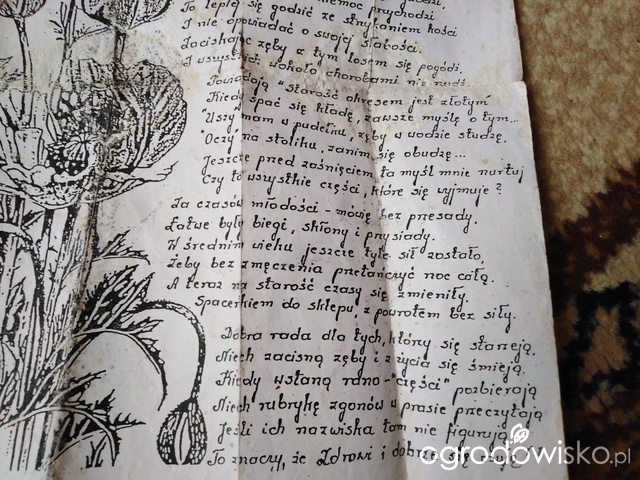 niemoc przychodzi,
To lepiej się godzić ze strykaniem kości
I nie opowiadać o swojej słabości.
Zaciskając zęby z tym losem się pogódź,
I wszystkich wokoło chorobami nie nudź.
Powiadają "starość okresem jest złotym"
Kiedy spać się kładę, zawsze myślę o tym...
"Uszy" mam w pudełku, "zęby" w wodzie studzę.
"Oczy" na stoliku, zanim się obudzę...
Jeszcze przed zaśnięciem ta myśl mnie nurtuje
Czy to wszystkie części, które się wyjmuje?
Za czasów młodości - mówię bez przesady.
Łatwe były biegi, skłony i przysiady.
W średnim wieku jeszcze tyle sił zostało,
Żeby bez zmęczenia przetańczyć noc całą.
A teraz na starość czasy się zmieniły.
Spacerkiem do sklepu, z powrotem bez siły.
Dobra rada dla tych, którzy się starzeją.
Niech zacisną zęby i z życia się śmieją.
Kiedy wstaną rano - "części" pozbierają
Niech rubrykę zgonów w prasie przeczytają
Jeśli ich nazwiska tam nie figurują
To znaczy, że Zdrowi i dobrze się czują
ogrodowisko.pl